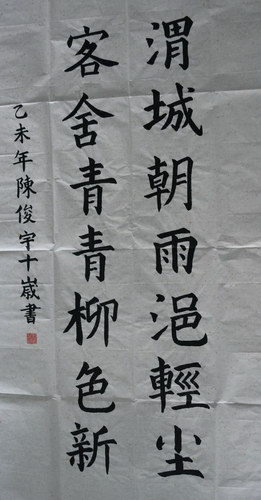 渭城朝雨浥輕尘
客舍青青柳色新
乙未年陳俊宇十嵗書